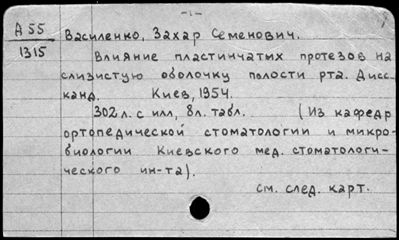 -1-
А 55 Василенко, Захар Семенович.
1315
Влияние пластинчатих протезов на
слизистую оболочку полости рта. Дисс.
канд. Киев, 1954.
302 л. с илл, 8л. табл. (Из кафедр
ортопедической стоматологии и микро-
биологии Киевского мед. стоматологи-
ческого ин-та).
см. след. карт.